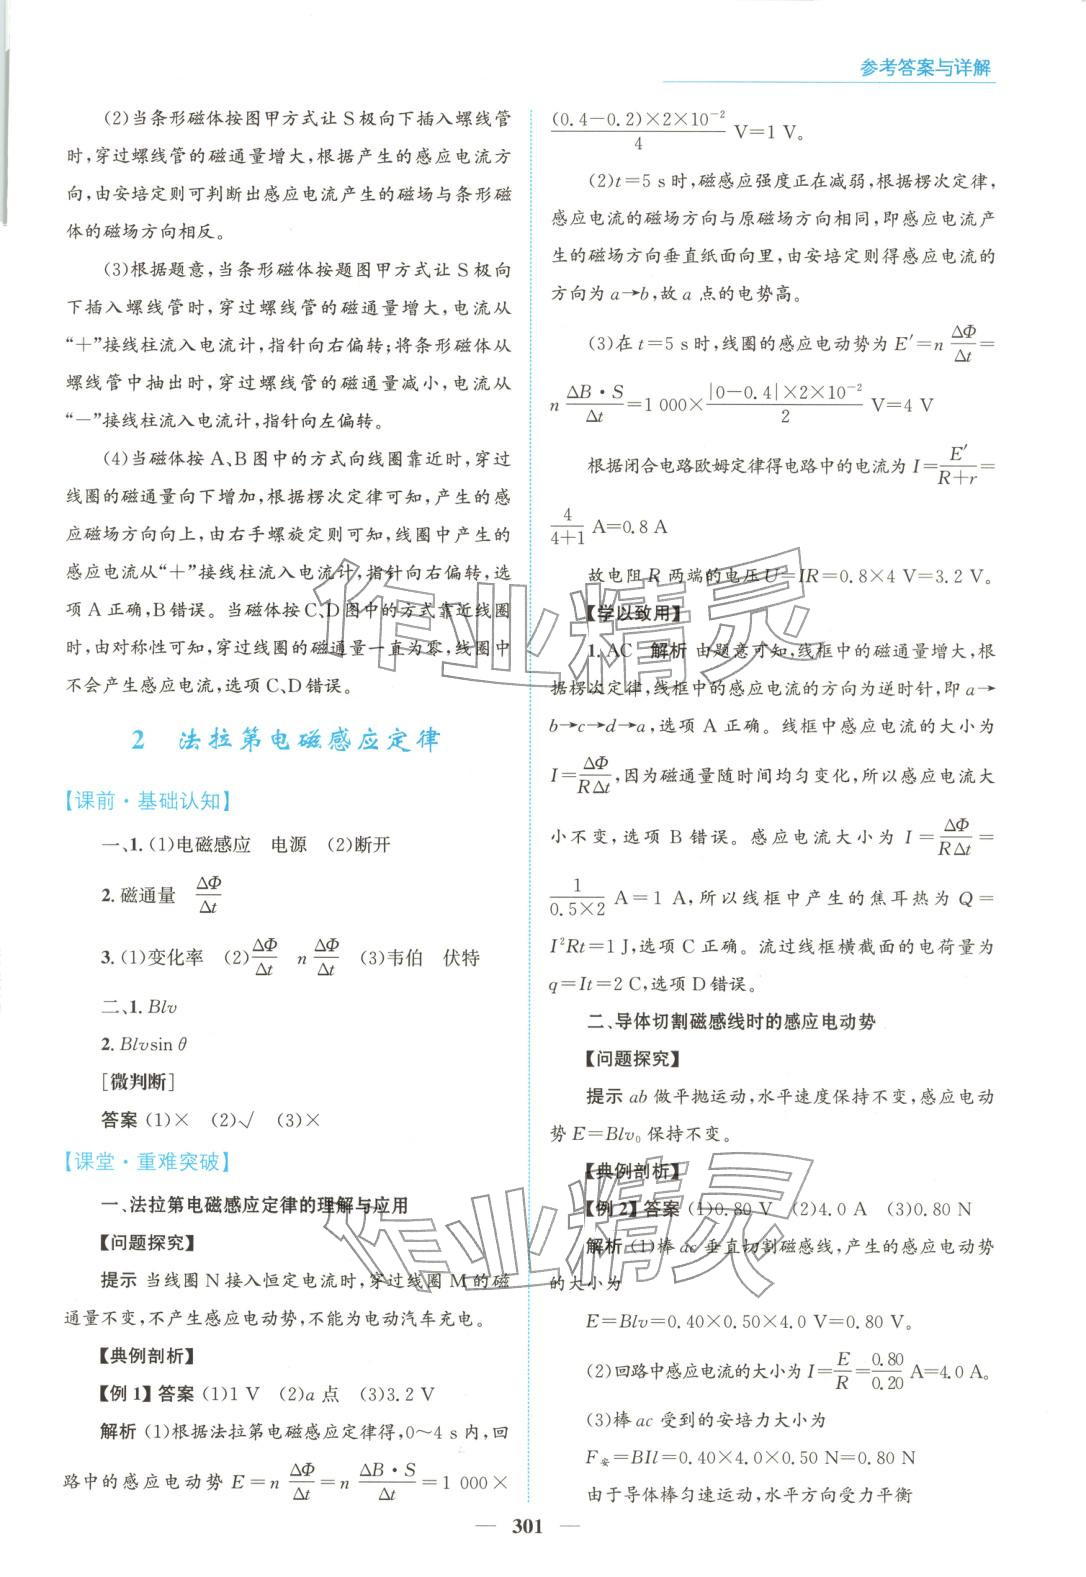 参考答案与详解
(2)当条形磁体按图甲方式让S极向下插入螺线管
时,穿过螺线管的磁通量增大,根据产生的感应电流方
向,由安培定则可判断出感应电流产生的磁场与条形磁
体的磁场方向相反。
(3)根据题意,当条形磁体按题图甲方式让S极向
下插入螺线管时,穿过螺线管的磁通量增大,电流从
“+”接线柱流入电流计,指针向右偏转;将条形磁体从
螺线管中抽出时,穿过螺线管的磁通量减小,电流从
“－”接线柱流入电流计,指针向左偏转。
(4)当磁体按A、B图中的方式向线圈靠近时,穿过
线圈的磁通量向下增加,根据楞次定律可知,产生的感
应磁场方向向上,由右手螺旋定则可知,线圈中产生的
感应电流从“+”接线柱流入电流计,指针向右偏转,选
项A正确,B错误。当磁体按C、D图中的方式靠近线圈
时,由对称性可知,穿过线圈的磁通量一直为零,线圈中
不会产生感应电流,选项C、D错误。
2 法拉第电磁感应定律
【课前·基础认知】
一、1.(1)电磁感应 电源 (2)断开
2.磁通量 ΔΦ/Δt
3.(1)变化率 (2)ΔΦ/Δt nΔΦ/Δt (3)韦伯 伏特
二、1.Blv
2.Blvsin θ
[微判断]
答案 (1)× (2)√ (3)×
【课堂·重难突破】
一、法拉第电磁感应定律的理解与应用
【问题探究】
提示 当线圈N接入恒定电流时,穿过线圈M的磁
通量不变,不产生感应电动势,不能为电动汽车充电。
【典例剖析】
【例1】答案 (1)1 V (2)a点 (3)3.2 V
解析 (1)根据法拉第电磁感应定律得,0～4 s内,回
路中的感应电动势 E=nΔΦ/Δt=nΔB·S/Δt=1 000×
(0.4-0.2)×2×10⁻²/4 V=1 V。
(2)t=5 s时,磁感应强度正在减弱,根据楞次定律,
感应电流的磁场方向与原磁场方向相同,即感应电流产
生的磁场方向垂直纸面向里,由安培定则得感应电流的
方向为a→b,故a点的电势高。
(3)在t=5 s时,线圈的感应电动势为E′=nΔΦ/Δt=
nΔB·S/Δt=1 000×|0-0.4|×2×10⁻²/2 V=4 V
根据闭合电路欧姆定律得电路中的电流为I=E′/(R+r)=
4/(4+1) A=0.8 A
故电阻R两端的电压U=IR=0.8×4 V=3.2 V。
【学以致用】
1.AC 解析 由题意可知,线框中的磁通量增大,根
据楞次定律,线框中的感应电流的方向为逆时针,即a→
b→c→d→a,选项A正确。线框中感应电流的大小为
I=ΔΦ/RΔt,因为磁通量随时间均匀变化,所以感应电流大
小不变,选项B错误。感应电流大小为I=ΔΦ/RΔt=
1/(0.5×2) A=1 A,所以线框中产生的焦耳热为Q=
I²Rt=1 J,选项C正确。流过线框横截面的电荷量为
q=It=2 C,选项D错误。
二、导体切割磁感线时的感应电动势
【问题探究】
提示 ab做平抛运动,水平速度保持不变,感应电动
势E=Blv₀保持不变。
【典例剖析】
【例2】答案 (1)0.80 V (2)4.0 A (3)0.80 N
解析 (1)棒ac垂直切割磁感线,产生的感应电动势
的大小为
E=Blv=0.40×0.50×4.0 V=0.80 V。
(2)回路中感应电流的大小为I=E/R=0.80/0.20 A=4.0 A。
(3)棒ac受到的安培力大小为
F安=BIl=0.40×4.0×0.50 N=0.80 N
由于导体棒匀速运动,水平方向受力平衡
301
作业精灵
作业精灵